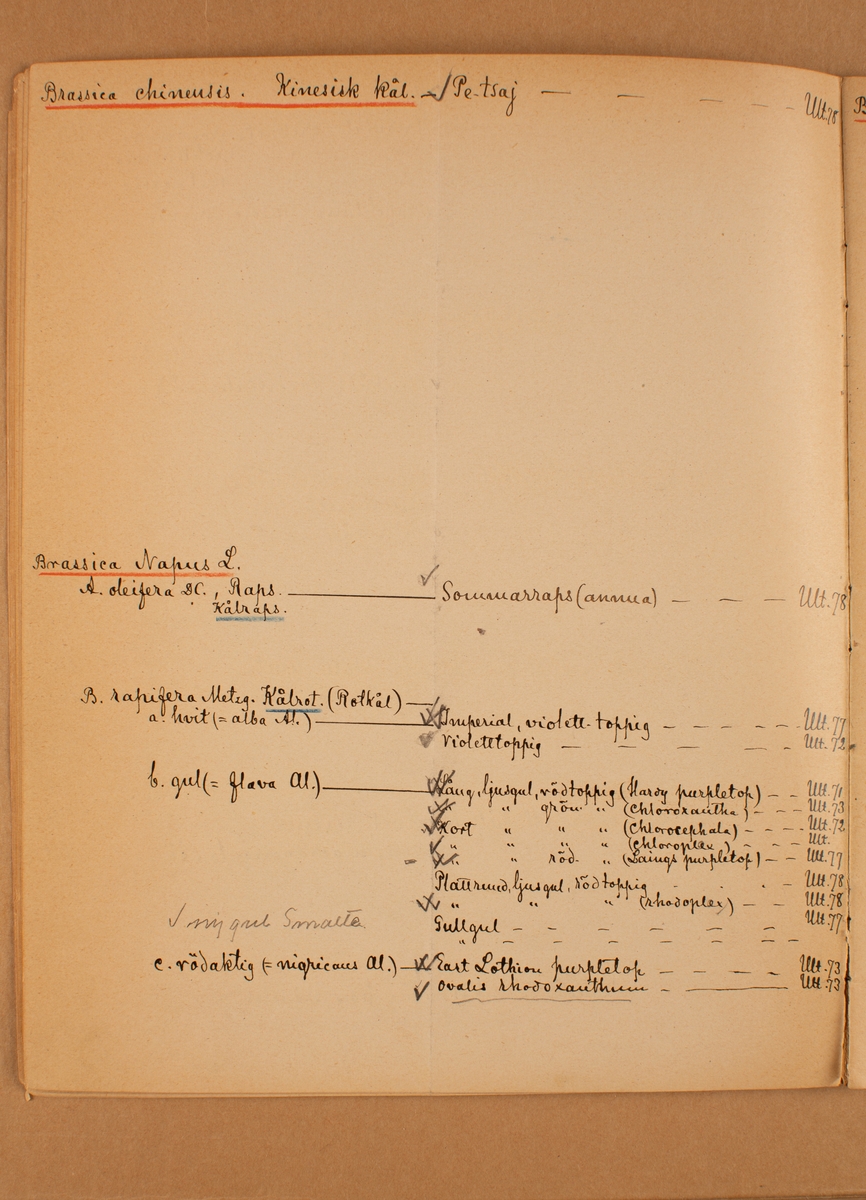 Brassica chinensis. Kinesisk kål. — Pe-tsaj — — — — — Ult. 78
Brassica Napus L.
A. oleifera DC., Raps. — Sommarraps (annua) — — — Ult. 78
Kålraps.
B. rapifera Metzg. Kålrot. (Rotkål) —
a. hvit (= alba Al.) — Imperial, violett-toppig — — — — Ult. 77
Violettoppig — — — — Ult. 72
b. gul (= flava Al.) — Lång, ljusgul, rödtoppig (Hardy purpletop) — — Ult. 71
„ „ grön- „ (chloroxantha) — — — Ult. 73
Kort „ „ „ (chlorocephala) — — — Ult. 72
„ „ „ „ (chloroplex) — — Ult.
„ „ röd- „ (Laings purpletop) — — Ult. 77
Plattrund, ljusgul, rödtoppig - - - Ult. 78
„ „ „ (rhodoplex) — — Ult. 78
Gullgul — — — — — — Ult. 77
√ ny gul Smalta
„ — — — — — — —
c. rödaktig (= nigricans Al.) — East Lothian purpletop — — — — Ult. 73
Ovalis rhodoxanthum — — Ult. 73